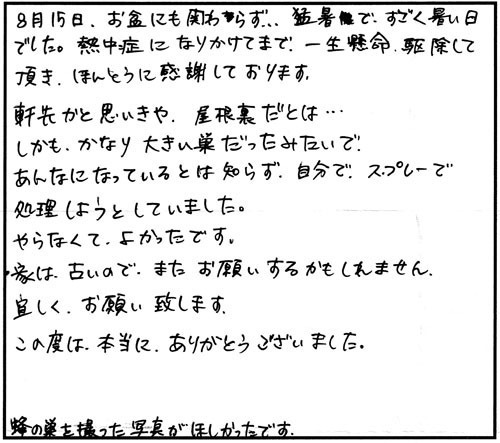 8月15日、お盆にも関わらず... 猛暑で、すごく暑い日
でした。熱中症になりかけてまで、一生懸命、駆除して
頂き、ほんとうに感謝しております。
軒先かと思いきや、屋根裏だとは…
しかも、かなり大きい巣だったみたいで、
あんなになっているとは知らず、自分で、スプレーで
処理しようとしていました。
やらなくて、よかったです。
家は、古いので、またお願いするかもしれません。
宜しく、お願い致します。
この度は、本当に、ありがとうございました。
蜂の巣を撮った写真がほしかったです。